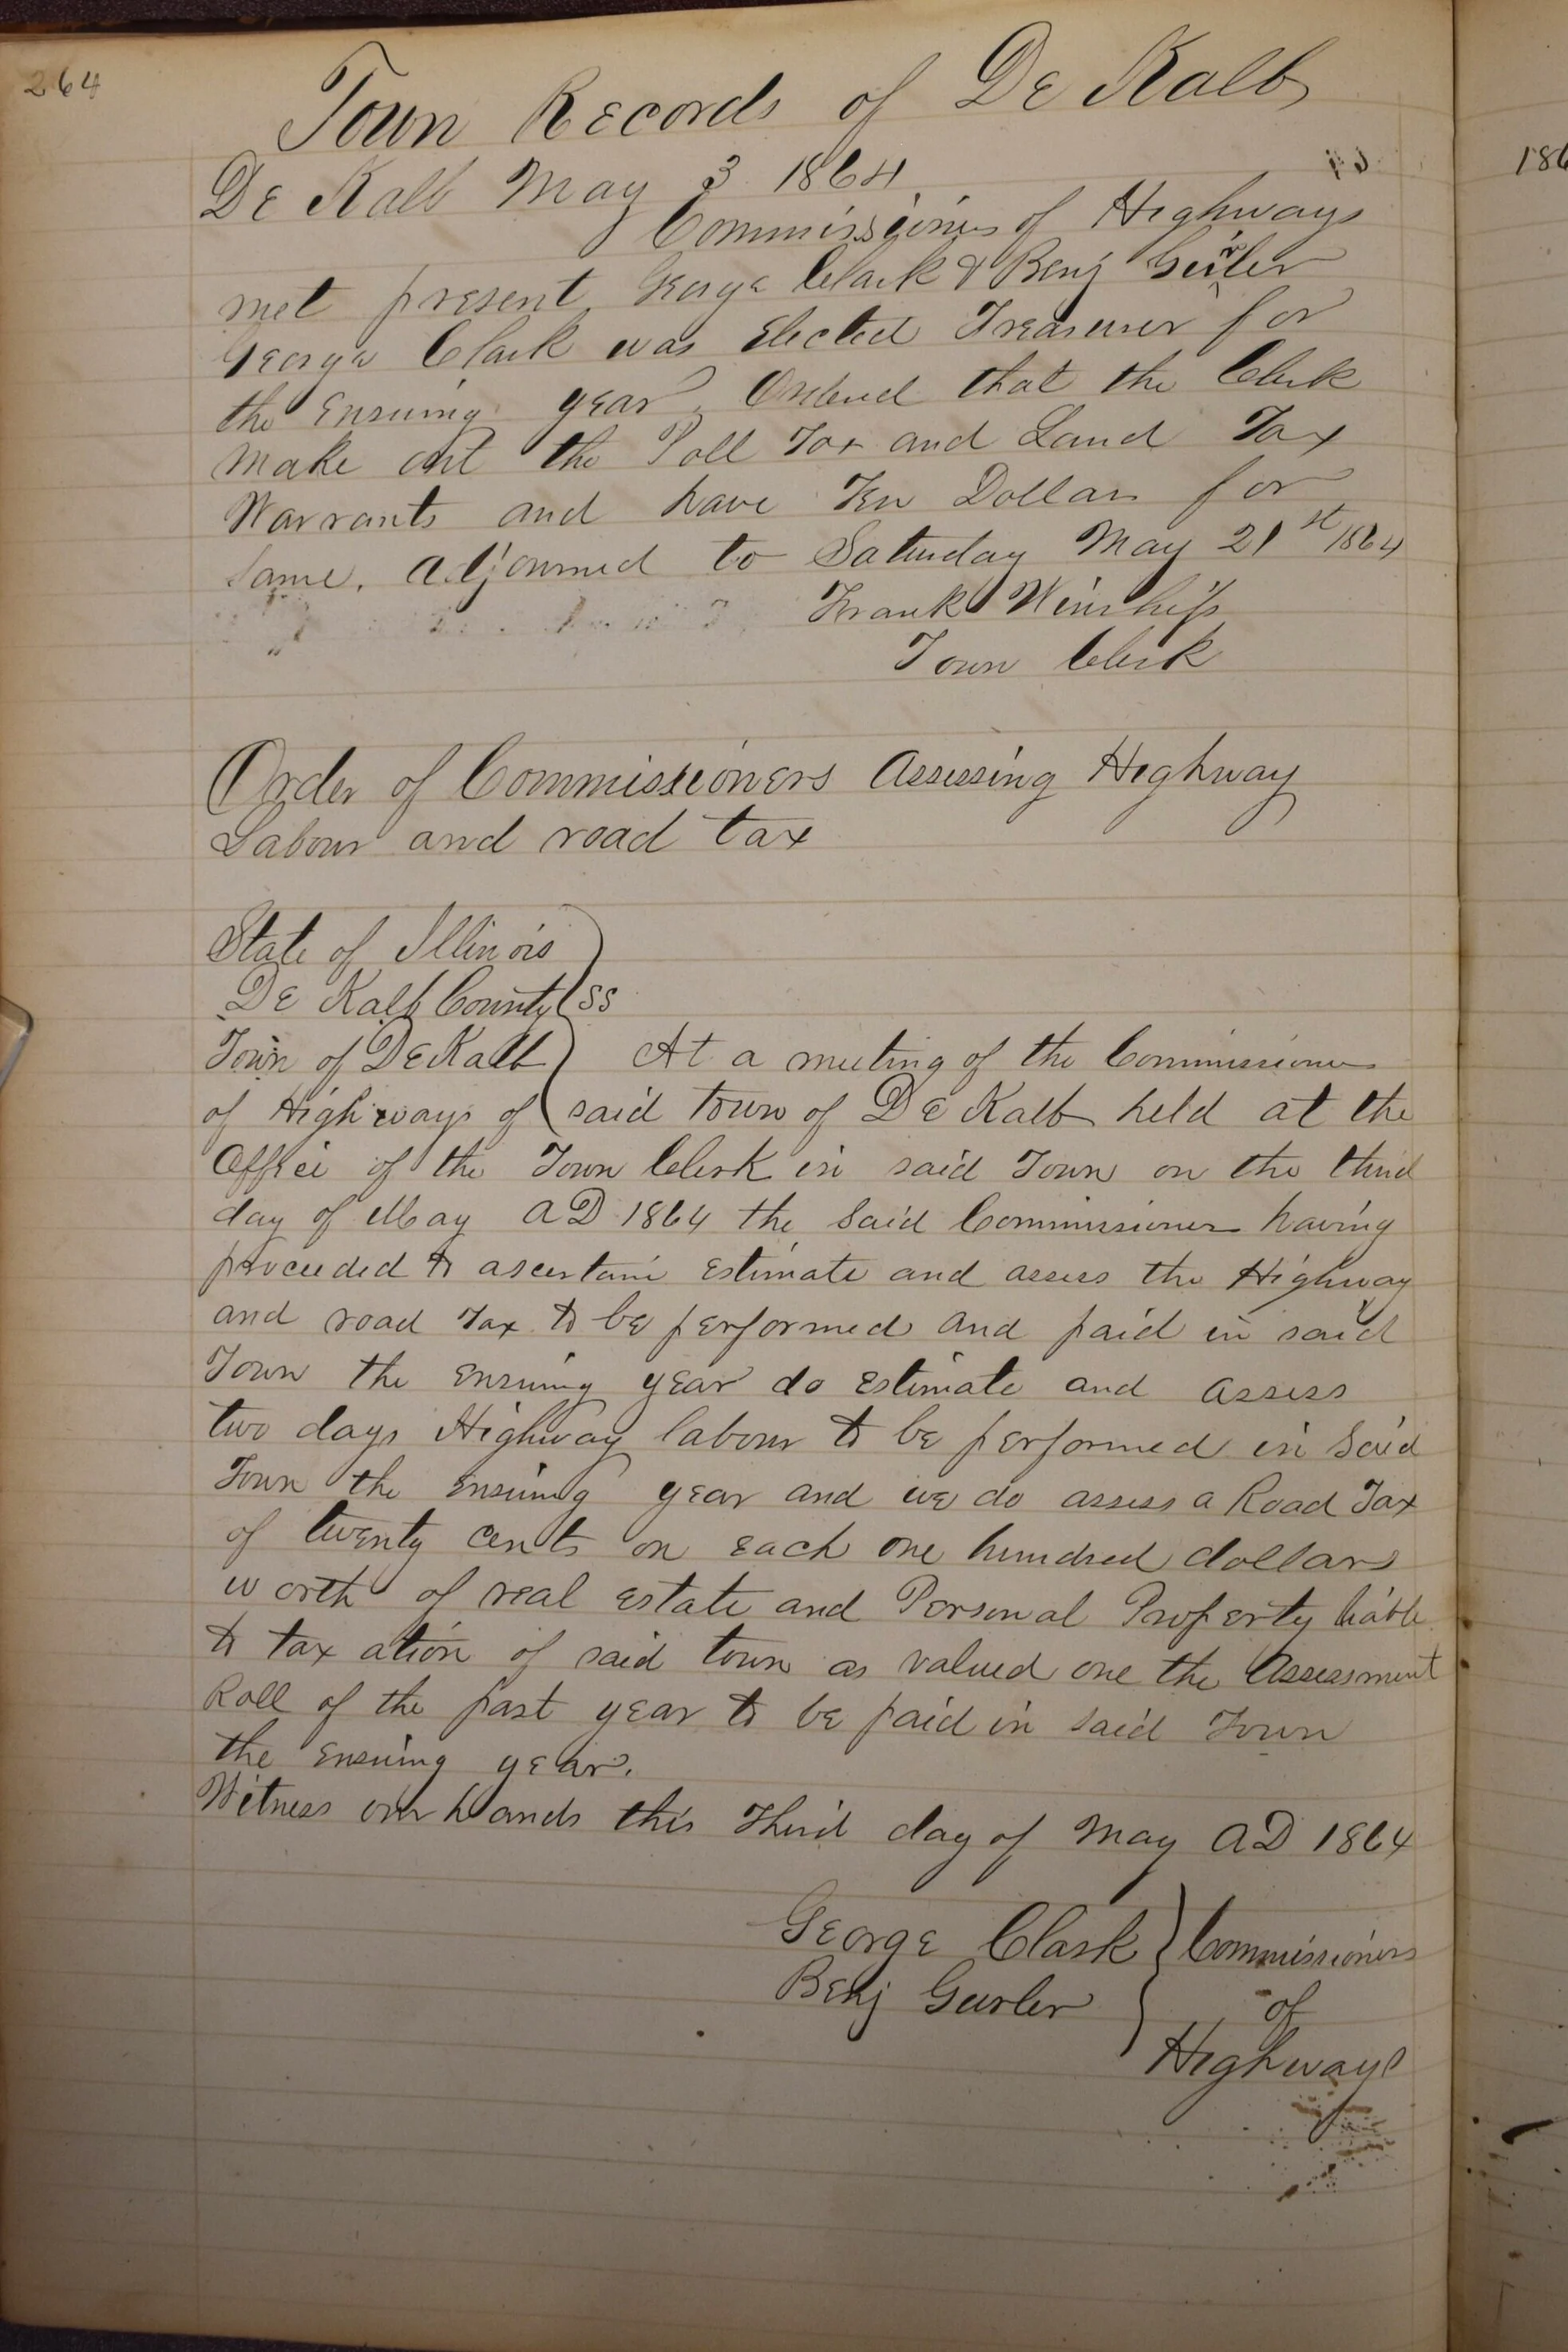 264
Town Records of De Kalb
De Kalb May 3 1864
Commissioners of Highways
met present George Clark & Benj Gurler
George Clark was Elected Treasurer for
the Ensuing year. Ordered that the Clerk
make out the Poll Tax and Land Tax
Warrants and have Ten Dollars for
same. adjourned to Saturday May 21st 1864
Frank Winship
Town Clerk
Order of Commissioners Assessing Highway
Labour and road tax
State of Illinois
De Kalb County ss
Town of DeKalb At a meeting of the Commissioners
of Highways of said town of De Kalb held at the
Office of the Town Clerk in said Town on the third
day of May AD 1864 the said Commissioners having
proceeded to ascertain Estimate and assess the Highway
and road Tax to be performed and paid in said
Town the ensuing year do estimate and assess
two days Highway labour to be performed in said
Town the Ensuing year and we do assess a Road Tax
of twenty cents on each one hundred dollars
worth of real estate and Personal Property liable
to taxation of said town as valued one the Assessment
Roll of the past year to be paid in said Town
the Ensuing year.
Witness our hands this Third day of May AD 1864
George Clark Commissioners
Benj Gurler of
Highways
186